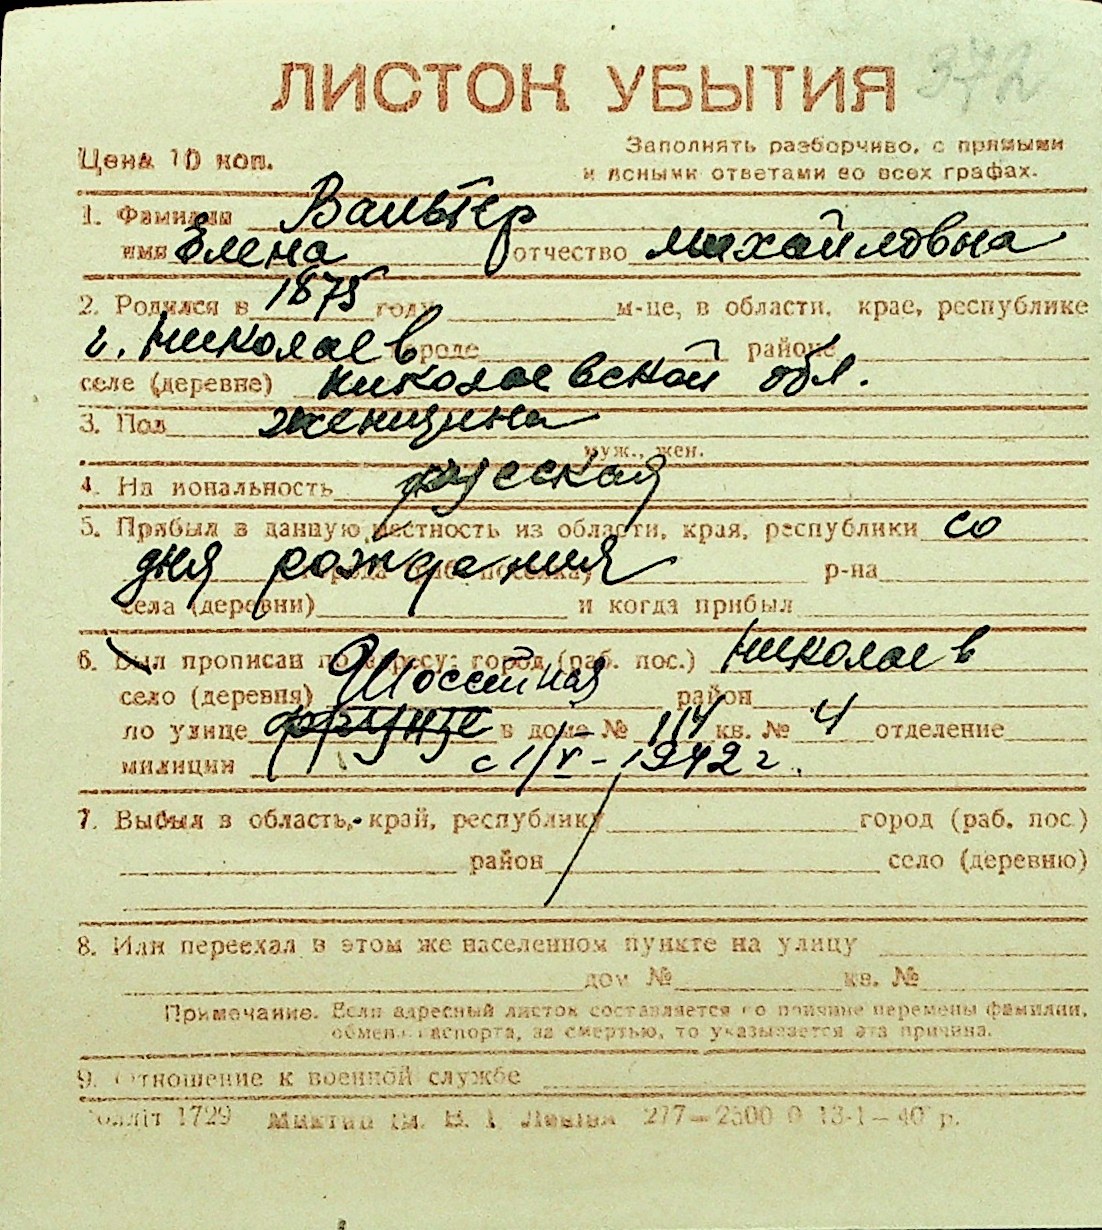 ЛИСТОК УБЫТИЯ 372
Цена 10 коп.
Заполнять разборчиво, с прямыми
и ясными ответами во всех графах.
1. Фамилия Вальтер
имя Елена отчество Михайловна
2. Родился в 1875 году м-це, в области, крае, республике
г. Николаев городе районе
селе (деревне) Николаевской обл.
3. Пол женщина
муж., жен.
4. Национальность русская
5. Прибыл в данную местность из области, края, республики со
дня рождения р-на
села (деревни) и когда прибыл
6. Был прописан по адресу: город (раб. пос.) Николаев
село (деревня) Шоссейная район
по улице Фрунзе в доме № 114 кв. № 4 отделение
милиции с 1/V - 1942 г.
7. Выбыл в область, край, республику город (раб. пос.)
район село (деревню)
8. Или переехал в этом же населенном пункте на улицу
дом № кв. №
Примечание. Если адресный листок составляется по причине перемены фамилии,
обмена паспорта, за смертью, то указывается эта причина.
9. Отношение к военной службе
1729 ім. В. І. Леніна 277—2500 0 13-1—40 р.